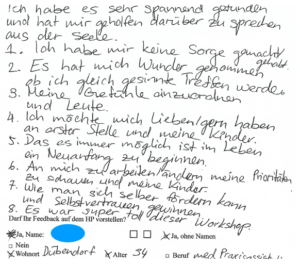 Ich habe es sehr spannend gefunden
und hat mir geholfen darüber zu sprechen
aus der Seele.
1. Ich habe mir keine Sorge gemacht/
gehabt.
2. Es hat mich Wunder genommen
ob ich gleich gesinnte Treffen werde
3. Meine Gefühle einzuordnen
und Leute.
4. Ich möchte mich Lieben/gern haben
an erster Stelle und meine Kinder.
5. Das es immer möglich ist im Leben
ein Neuanfang zu beginnen.
6. An mich zu arbeiten/ändern meine Prioritäten
zu schauen und meine Kinder.
7. Wie man sich selber fördern kann
und Selbstvertrauen gewinnen
8. Es war super toll dieser Workshop.
Darf Ihr Feedback auf dem HP vorstellen?
Ja, Name: Ja, ohne Namen
Nein
Wohnort Dübendorf Alter 34 Beruf med